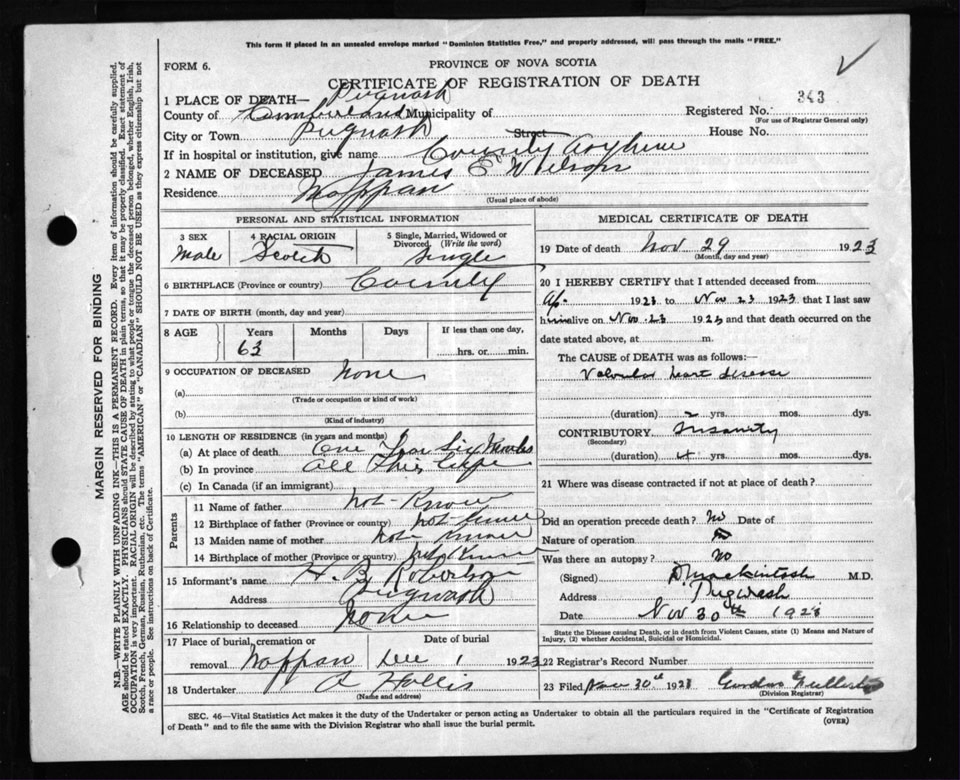 This form if placed in an unsealed envelope marked "Dominion Statistics Free," and properly addressed, will pass through the mails "FREE."
FORM 6.
PROVINCE OF NOVA SCOTIA
CERTIFICATE OF REGISTRATION OF DEATH
1 PLACE OF DEATH— Pugwash
343
County of Cumberland Municipality of
Registered No.
(For use of Registrar General only)
City or Town Pugwash Street House No.
If in hospital or institution, give name County Asylum
2 NAME OF DECEASED James E Wilson
Residence Nappan
(Usual place of abode)
PERSONAL AND STATISTICAL INFORMATION
3 SEX Male
4 RACIAL ORIGIN Scotch
5 Single, Married, Widowed or Divorced. (Write the word) Single
6 BIRTHPLACE (Province or country) County
7 DATE OF BIRTH (month, day and year)
8 AGE Years Months Days If less than one day,
63 hrs. or min.
9 OCCUPATION OF DECEASED None
(a)
(Trade or occupation or kind of work)
(b)
(Kind of industry)
10 LENGTH OF RESIDENCE (in years and months)
(a) At place of death One Year Six Months
(b) In province All His Life
(c) In Canada (if an immigrant)
Parents
11 Name of father not Know
12 Birthplace of father (Province or country) not Know
13 Maiden name of mother not Know
14 Birthplace of mother (Province or country) not Know
15 Informant's name H. B. Robertson
Address Pugwash
16 Relationship to deceased None
17 Place of burial, cremation or removal Nappan
Date of burial Dec 1 1923
18 Undertaker A Hollis
MEDICAL CERTIFICATE OF DEATH
19 Date of death Nov 29 1923
(Month, day and year)
20 I HEREBY CERTIFY that I attended deceased from
Ap. 1923 to Nov 23 1923 that I last saw
him alive on Nov. 23 1923 and that death occurred on the
date stated above, at m.
The CAUSE of DEATH was as follows:—
Valvular heart disease
(duration) 2 yrs. mos. dys.
CONTRIBUTORY Insanity
(Secondary)
(duration) 4 yrs. mos. dys.
21 Where was disease contracted if not at place of death?
Did an operation precede death? No Date of
Nature of operation
Was there an autopsy? No
(Signed) D Mackintosh M.D.
Address Pugwash
Date Nov 30th 1923
State the Disease causing Death, or in death from Violent Causes, state (1) Means and Nature of
Injury, (2) whether Accidental, Suicidal or Homicidal.
22 Registrar's Record Number
23 Filed Nov 30th 1923 Gordon Fullerton
(Division Registrar)
SEC. 46—Vital Statistics Act makes it the duty of the Undertaker or person acting as Undertaker to obtain all the particulars required in the "Certificate of Registration
of Death" and to file the same with the Division Registrar who shall issue the burial permit.
(OVER)
MARGIN RESERVED FOR BINDING
N.B.—WRITE PLAINLY WITH UNFADING INK—THIS IS A PERMANENT RECORD. Every item of information should be carefully supplied.
AGE should be stated EXACTLY. PHYSICIANS should STATE CAUSE OF DEATH in plain terms, so that it may be properly classified. Exact statement of
OCCUPATION is very important. RACIAL ORIGIN will be described by stating to what people or tongue the deceased person belonged, whether English, Irish,
Scotch, French, German, Russian, Ruthenian, etc. The terms "AMERICAN" or "CANADIAN" SHOULD NOT BE USED as they express citizenship but not
a race or people. See instructions on back of Certificate.